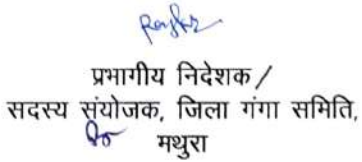 प्रभागीय निदेशक /
सदस्य संयोजक, जिला गंगा समिति,
मथुरा